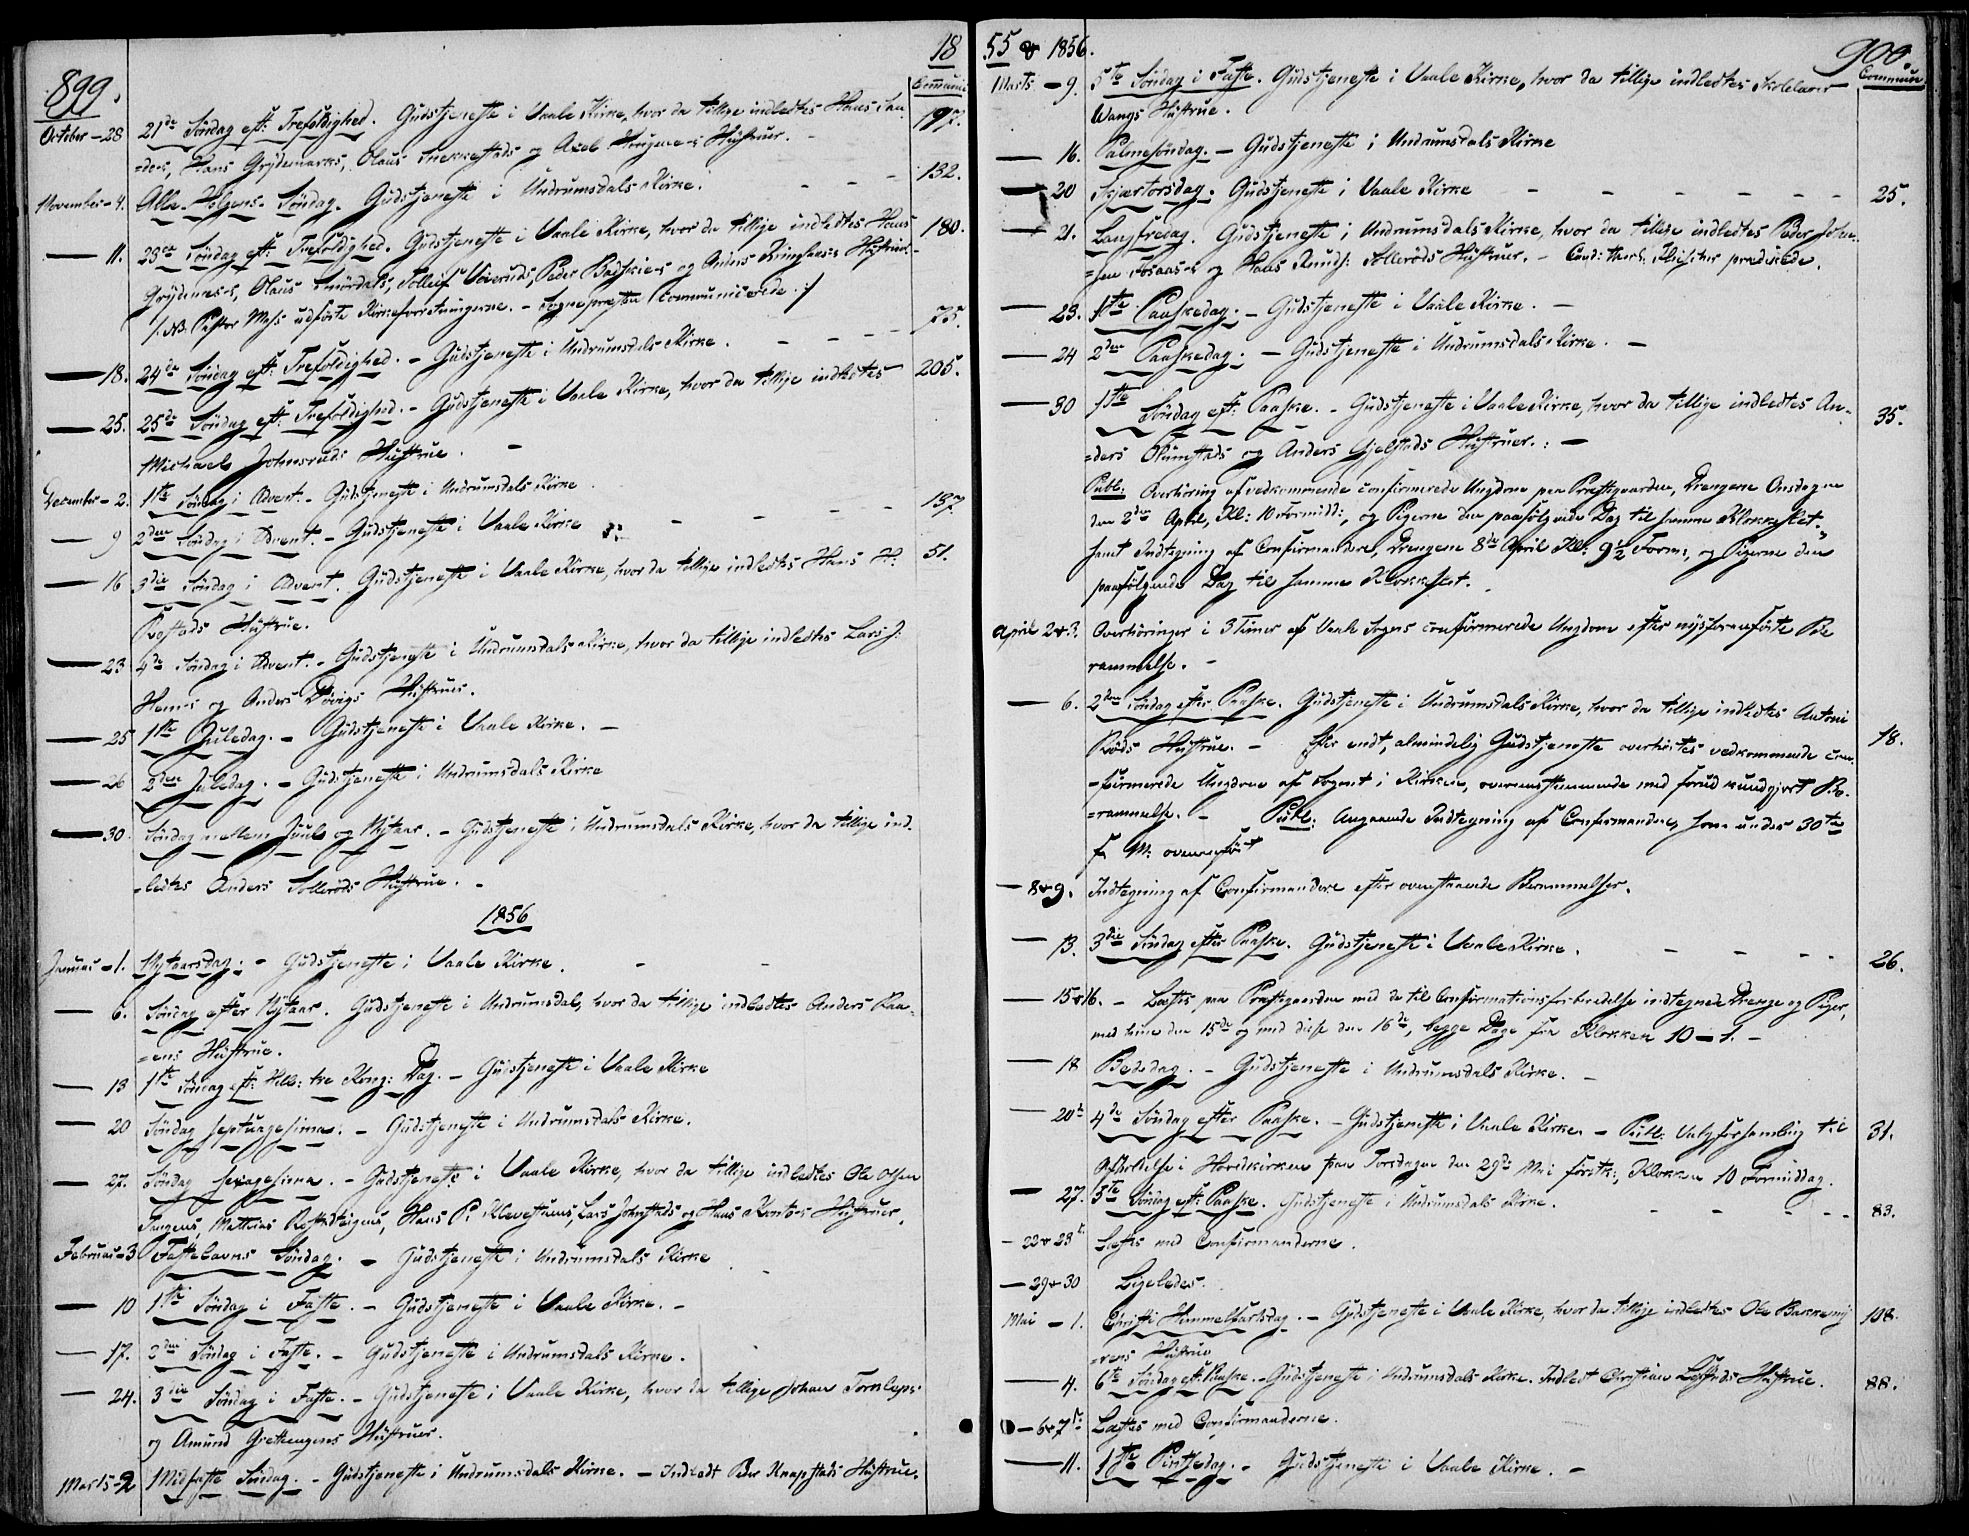 899.
18
Communic
October - 28 21de Søndag eft: Trefoldighed. Gudstjeneste i Vaale Kirke, hvor da tillige indledtes Hans San- 197.
=ders, Hans Grydemarks, Olaus Snekkestads og Axel Haugene-s Hustruer. -
November - 4. Alle-Helgens-Søndag. Gudstjeneste i Undrumsdals Kirke. - - - 132.
— 11. 23de Søndag eft: Trefoldighed. Gudstjeneste i Vaale Kirke, hvor da tillige indledtes Hans 180.
Olaus Smørdals, Tollef Peder og Anders Hustruer.-
/: NB. Pastor Mass udførte Kirkeforretningerne. - Sognepresten communicerede :/
— 18. 24de Søndag eft: Trefoldighed. - Gudstjeneste i Undrumsdals Kirke. - - - 75.
— 25. 25de Søndag eft: Trefoldighed. - Gudstjeneste i Vaale Kirke, hvor da tillige indledtes 205.
Michael Johnsruds Hustrue. -
December - 2. 1ste Søndag i Advent. - Gudstjeneste i Undrumsdals Kirke.
— 9 2den Søndag i Advent. - Gudstjeneste i Vaale Kirke - - - - 137.
— 16 3die Søndag i Advent. Gudstjeneste i Vaale Kirke, hvor da tillige indledtes Hans H: 51.
Hustrue.
— 23 4de Søndag i Advent. - Gudstjeneste i Undrumsdals Kirke, hvor da tillige indledtes Lars J:
Hem-s og Anders Hustruer.
— 25 1ste Juledag. - Gudstjeneste i Vaale Kirke. -
— 26 2den Juledag. - Gudstjeneste i Undrumsdals Kirke
— 30. Søndag mellem Juul og Nytaar. - Gudstjeneste i Undrumsdals Kirke, hvor da tillige ind-
=ledtes Anders Sollerøds Hustrue. -
1856
Januar - 1. Nytaarsdag: - Gudstjeneste i Vaale Kirke. - -
— 6. Søndag efter Nytaar. Gudstjeneste i Undrumsdal, hvor da tillige indledtes Anders
=ens Hustrue.
— 13 1ste Søndag eft: Hell: tre Kong: Dag. - Gudstjeneste i Vaale Kirke
— 20 Søndag septuagesima. - Gudstjeneste i Undrumsdals Kirke.
— 27. Søndag sexagesima. - Gudstjeneste i Vaale Kirke, hvor da tillige indledtes Ole Olsen
Tangens, Mathias Hans P. Lars og Hans Hustruer.
Februar - 3 Fastelavns Søndag. - Gudstjeneste i Undrumsdals Kirke
— 10 1ste Søndag i Faste. - Gudstjeneste i Vaale Kirke. -
— 17. 2den Søndag i Faste. - Gudstjeneste i Undrumsdals Kirke.
— 24. 3die Søndag i Faste. - Gudstjeneste i Vaale Kirke, hvor da tillige Johan
og Amund Hustruer.
Marts - 2 Midfaste Søndag. - Gudstjeneste i Undrumsdals Kirke. - Indledt Hustrue.
55 & 1856.
900.
Commun
Marts - 9. 5te Søndag i Faste. Gudstjeneste i Vaale Kirke, hvor da tillige indledtes Skolelærer
Wangs Hustrue.
— 16. Palmesøndag. - Gudstjeneste i Undrumsdals Kirke
— 20 Skjærtorsdag. Gudstjeneste i Vaale Kirke - - - - - 25.
— 21. Langfredag. Gudstjeneste i Undrumsdals Kirke, hvor da tillige indledtes Peder Johan-
=sen Fosaas-s og Hans Knuds: Sollerøds Hustruer. - Cand: theol: prædikede.
— 23. 1ste Paaskedag: - Gudstjeneste i Vaale Kirke. -
— 24 2den Paaskedag. - Gudstjeneste i Undrumsdals Kirke. -
— 30 1ste Søndag eft: Paaske. - Gudstjeneste i Vaale Kirke, hvor da tillige indledtes An- 35.
=ders og Anders Gjelstads Hustruer. : -
Publ: Overhøring af vedkommende confirmerede Ungdom paa Præstegaarden, Drengene Onsdagen
den 2den April, Kl: 10 Formidd:, og Pigerne den paafølgende Dag til samme Klokkeslet.
samt Indtegning af Confirmandere, Drengene 8de April Kl: 9½ Form:, og Pigerne den
paafølgende Dag til samme Klokkeslet.
April 2&3. Overhøringer i 3 Timer af Vaale Sogns confirmerede Ungdom efter nysforanførte Be
rammelse. -
— 6. 2den Søndag efter Paaske. Gudstjeneste i Undrumsdals Kirke, hvor da tillige indledtes Antoni
Røds Hustrue. - Efter endt, almindelig Gudstjeneste overhørtes vedkommende con- 18.
=firmerede Ungdom af Sognet i Kirken, overensstemmende med forud kundgjort Be-
=rammelse. - Publ: Angaaende Indtegning af Confirmandere, som under 30te
f: M: ovenanført
— 8&9. Indtegning af Confirmandere efter ovenstaaende Berammelser.
— 13. 3die Søndag efter Paaske. Gudstjeneste i Vaale Kirke. - - - - 26.
— 15&16. - Læstes paa Præstegaarden med de til Confirmationsforberedelse indtegnede Drenge og Piger,
med hine den 15de og med disse den 16de, begge Dage fra Klokken 10 - 1. -
— 18 Bededag. - Gudstjeneste i Undrumsdals Kirke. -
— 20de 4de Søndag efter Paaske. - Gudstjeneste i Vaale Kirke. - Publ: Valgforsamling til 31.
Afholdelse i Hovedkirken paa Torsdagen den 29de Mai førstk:, Klokken 10 Formiddag.
— 27. 5te Søndag eft: Paaske. Gudstjeneste i Undrumsdals Kirke. - - - - 83.
— 22&23de Læstes med Confirmanderne.
— 29&30 Ligeledes.
Mai - 1. Christi Himmelfartsdag. - Gudstjeneste i Vaale Kirke, hvor da tillige indledtes Ole 108.
Hustrue
— 4. 6te Søndag eft: Paaske. - Gudstjeneste i Undrumsdals Kirke. Indledt Christian Hustrue. 88.
— 6&7de Læstes med Confirmanderne.
— 11. 1ste Pintsedag. - Gudstjeneste i Vaale Kirke. -